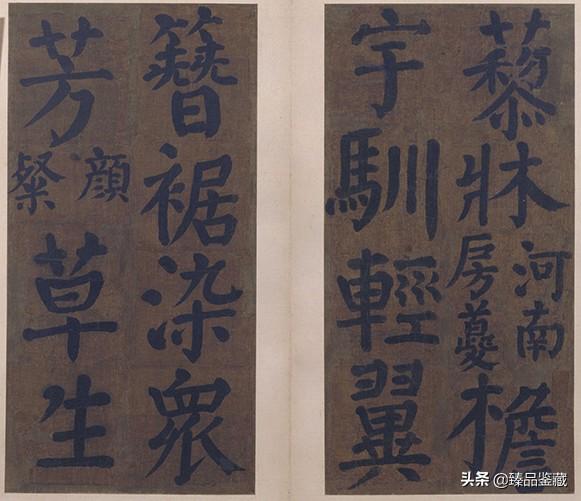 藜牀河南房夔檐
宇馴輕翼
簪裾染眾
芳顏粲草生
头条 @臻品鉴藏